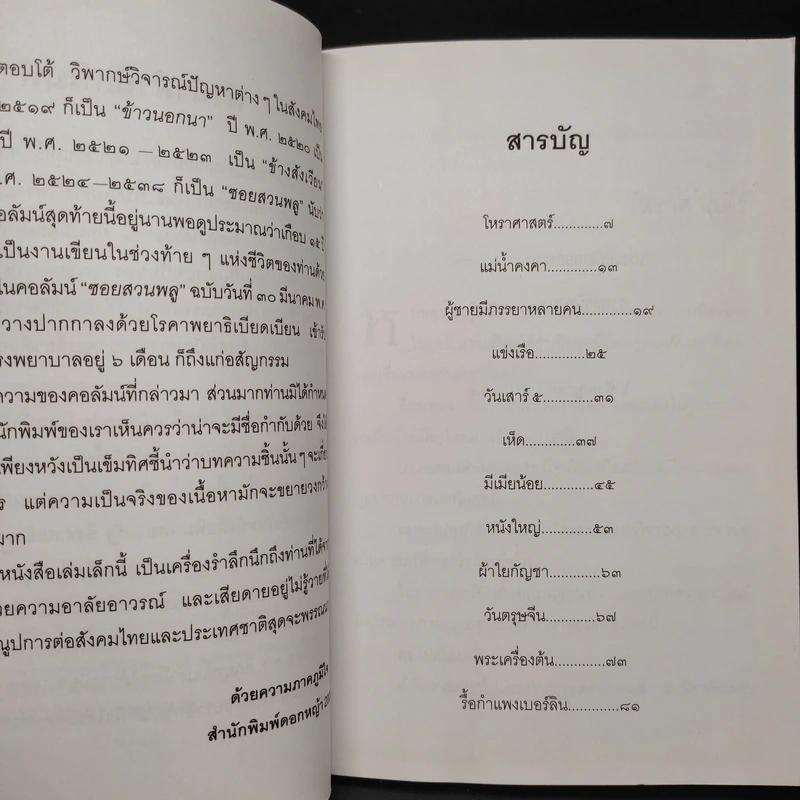 ตอบโต้ วิพากษ์วิจารณ์ปัญหาต่าง ๆ ในสังคมไทย
๒๕๑๙ ก็เป็น “ข้าวนอกนา” ปี พ.ศ. ๒๕๒๐ เป็น
ปี พ.ศ. ๒๕๒๑ — ๒๕๒๓ เป็น “ข้างสังเวียน”
.ศ. ๒๕๒๔—๒๕๓๘ ก็เป็น “ซอยสวนพลู” นับว่า
อลัมน์สุดท้ายนี้อยู่นานพอดูประมาณว่าเกือบ ๑๕ ปี
เป็นงานเขียนในช่วงท้าย ๆ แห่งชีวิตของท่านด้วย
ในคอลัมน์ “ซอยสวนพลู” ฉบับวันที่ ๓๐ มีนาคม พ.ศ.
วางปากกาลงด้วยโรคาพยาธิเบียดเบียน
รงพยาบาลอยู่ ๖ เดือน ก็ถึงแก่อสัญกรรม
ความของคอลัมน์ที่กล่าวมา ส่วนมากท่านมิได้กำหนด
นักพิมพ์ของเราเห็นควรว่าน่าจะมีชื่อกำกับด้วย
เพียงหวังเป็นเข็มทิศชี้นำว่าบทความชิ้นนั้น ๆ จะเกี่ย
ร แต่ความเป็นจริงของเนื้อหามักจะขยายวงกว้าง
มาก
หนังสือเล่มเล็กนี้ เป็นเครื่องรำลึกนึกถึงท่านที่ได้จาก
วยความอาลัยอาวรณ์ และเสียดายอยู่ไม่รู้วายที่
ณูปการต่อสังคมไทยและประเทศชาติสุดจะพรรณนา
ด้วยความภาคภูมิใจ
สำนักพิมพ์ดอกหญ้า
สารบัญ
โหราศาสตร์............๗
แม่น้ำคงคา............๑๓
ผู้ชายมีภรรยาหลายคน............๑๙
แข่งเรือ............๒๕
วันเสาร์ ๕............๓๑
เห็ด............๓๗
มีเมียน้อย............๔๕
หนังใหญ่............๕๓
ผ้าใยกัญชา............๖๓
วันตรุษจีน............๖๗
พระเครื่องต้น............๗๓
รื้อกำแพงเบอร์ลิน............๘๑